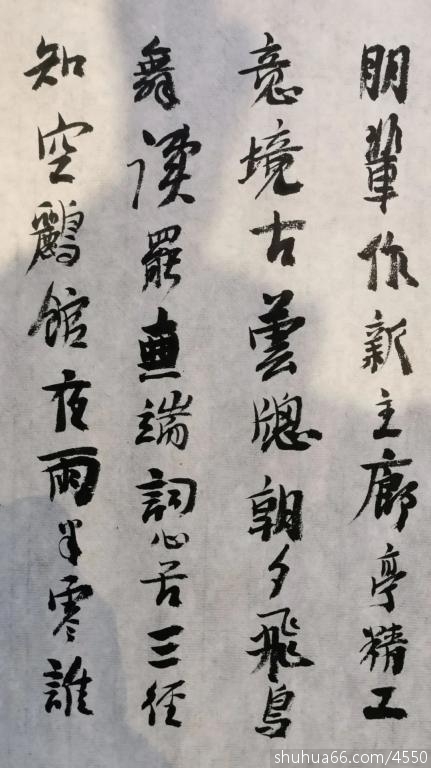 朋輩作新主廊亭精工
意境古芸窗朝夕飛鳥
舞漢罷無端詞心苦三徑
知空鸝館夜雨半零誰
shuhua66.com/4550